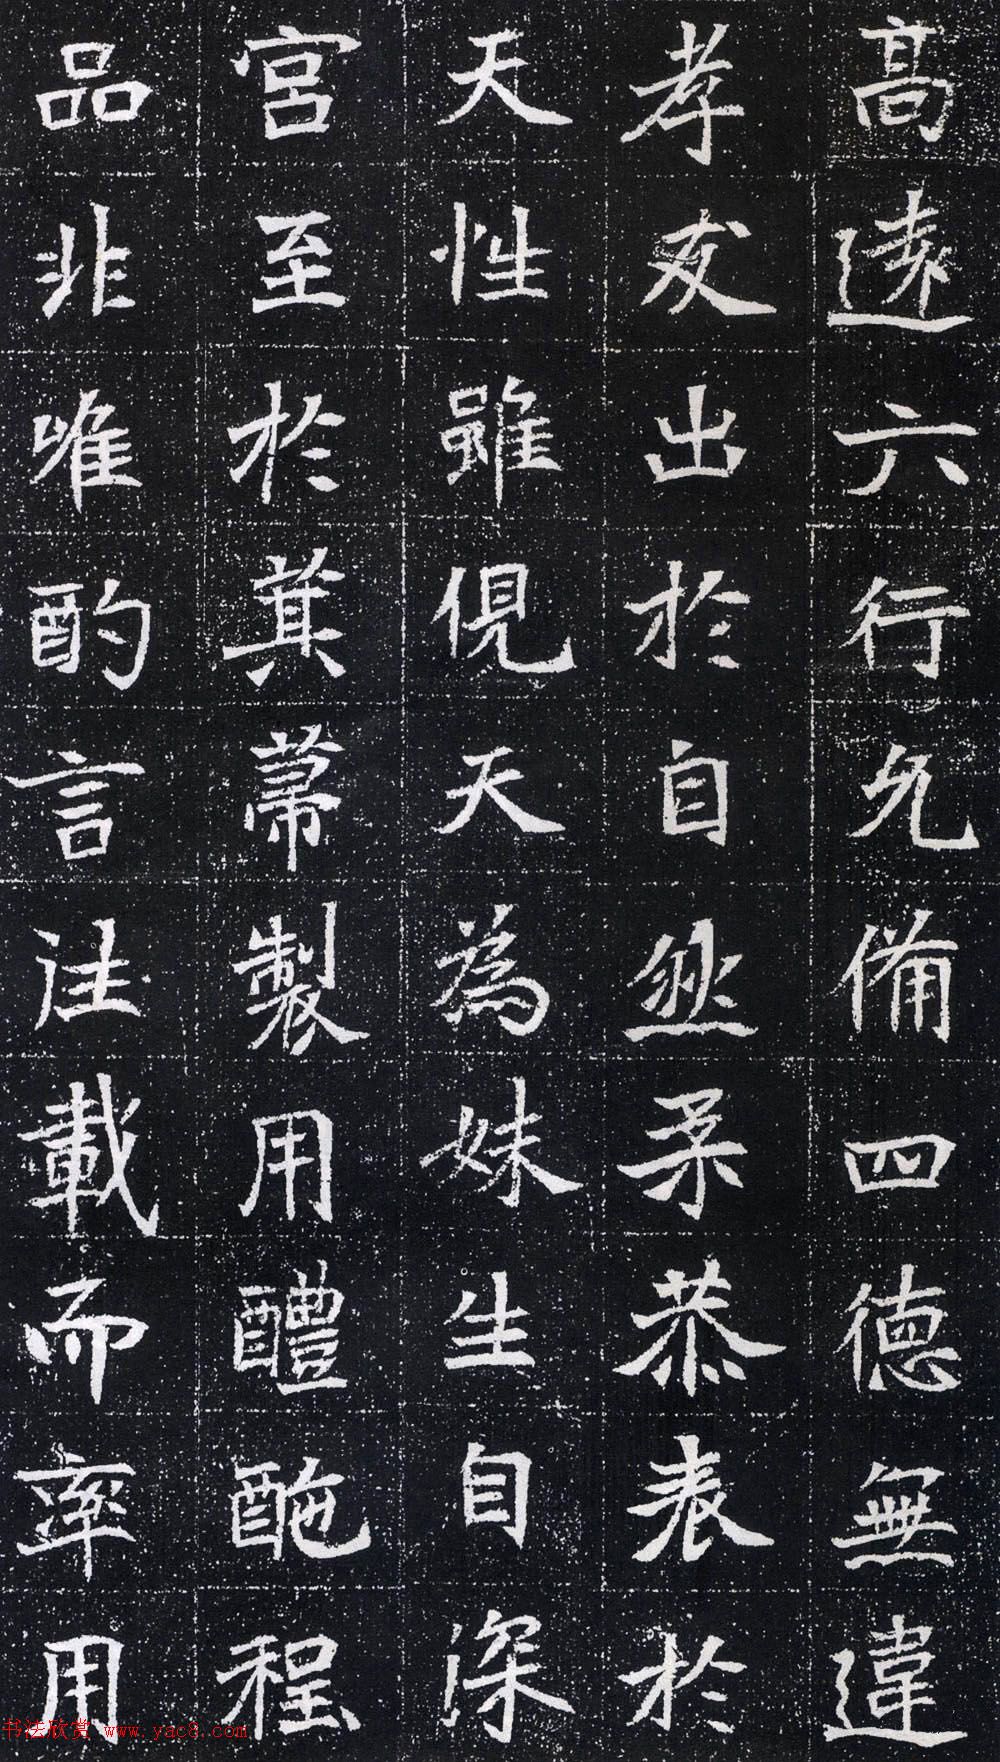 高遠六行允備四德無違
孝友出於自然柔恭表於
天性雖俔天為妹生自深
宮至於箕帚製用醴酏程
品非唯酌言往載而率用
书法欣赏 www.yac8.com